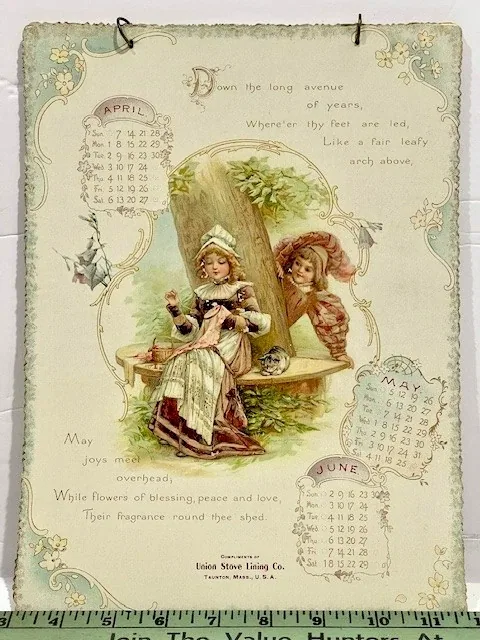 Down the long avenue
of years,
Where'er thy feet are led,
Like a fair leafy
arch above,
APRIL
Sun 7 14 21 28
Mon 1 8 15 22 29
Tue 2 9 16 23 30
Wed 3 10 17 24
Thu 4 11 18 25
Fri 5 12 19 26
Sat 6 13 20 27
MAY
Sun 5 12 19 26
Mon 6 13 20 27
Tue 7 14 21 28
Wed 1 8 15 22 29
Thu 2 9 16 23 30
Fri 3 10 17 24 31
Sat 4 11 18 25
JUNE
Sun 2 9 16 23 30
Mon 3 10 17 24
Tue 4 11 18 25
Wed 5 12 19 26
Thu 6 13 20 27
Fri 7 14 21 28
Sat 1 8 15 22 29
May
joys meet
overhead,
While flowers of blessing, peace and love,
Their fragrance round thee shed.
COMPLIMENTS OF
Union Stove Lining Co.
TAUNTON, MASS., U.S.A.
3 4 5 6 7 8 9 10 11 12 13
Join The Value Hunters At